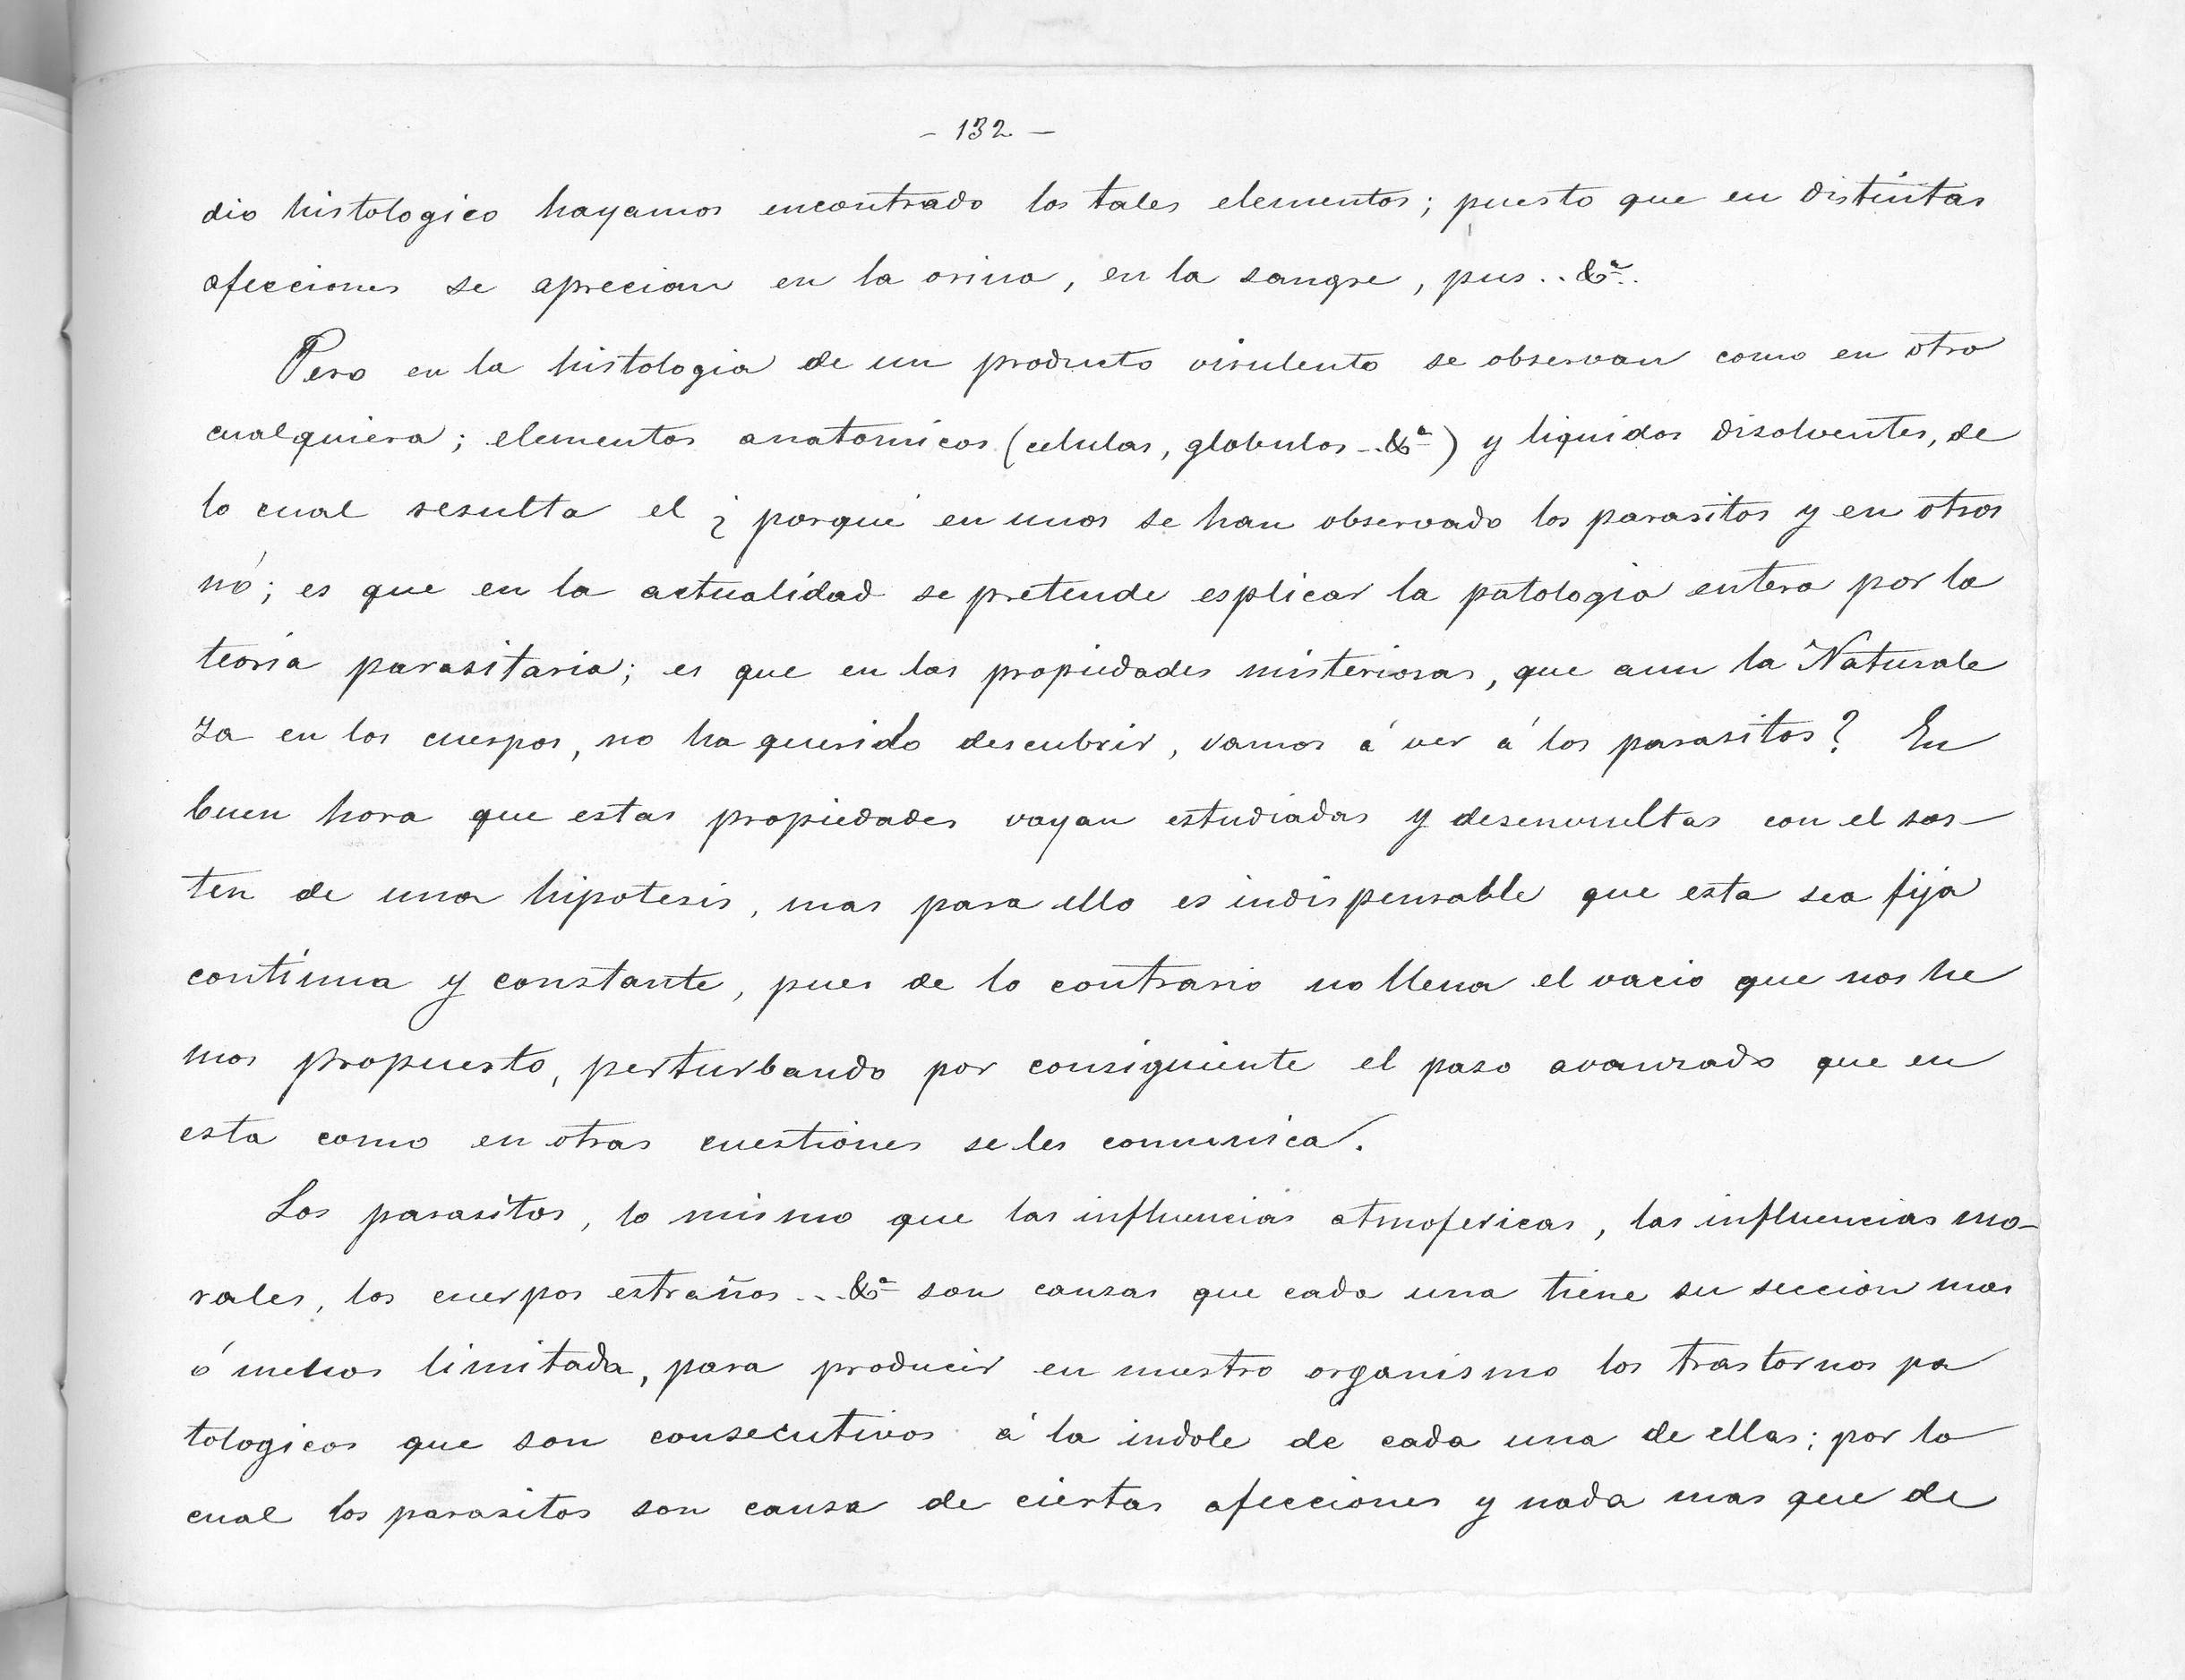 - 132 -
dio histologico hayamos encontrado los tales elementos; puesto que en distintas
afecciones se aprecian en la orina, en la sangre, pus..&ª..
Pero en la histologia de un producto virulento se observan como en otro
cualquiera; elementos anatomicos (celulas, globulos -.&ª) y liquidos disolventes, de
lo cual resulta el ¿ porqué en unos se han observado los parasitos y en otros
nó; es que en la actualidad se pretende esplicar la patologia entera por la
teoría parasitaria; es que en las propiedades misteriosas, que aun la Naturale
za en los cuerpos, no ha querido descubrir, vamos á ver á los parasitos? En
buen hora que estas propiedades vayan estudiadas y desenvueltas con el sos-
ten de una hipotesis, mas para ello es indispensable que esta sea fija
contínua y constante, pues de lo contrario no llena el vacio que nos he
mos propuesto, perturbando por consiguiente el paso avanzado que en
esta como en otras cuestiones se les comunica.
Los parasitos, lo mismo que las influencias atmofericas, las influencias mo-
rales, los cuerpos estraños...&ª son causas que cada una tiene su seccion mas
ó menos limitada, para producir en nuestro organismo los trastornos pa
tologicos que son consecutivos á la indole de cada una de ellas; por lo
cual los parasitos son causa de ciertas afecciones y nada mas que de